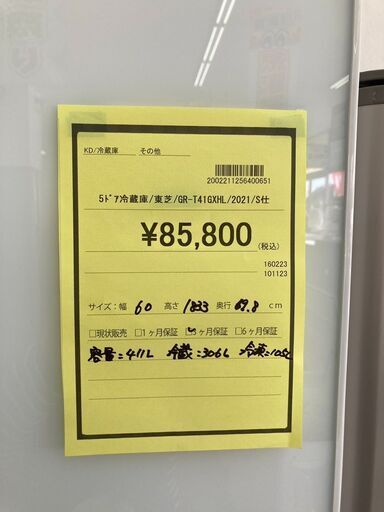 KD/冷蔵庫 その他
2002211256400651
5ﾄﾞｱ冷蔵庫/東芝/GR-T41GXHL/2021/S仕
¥85,800(税込)
160223
101123
サイズ:幅 60 高さ 1833 奥行 69.8 cm
□現状販売 □1ヶ月保証 ☑3ヶ月保証 □6ヶ月保証
容量:411L 冷蔵:306L 冷凍:105L